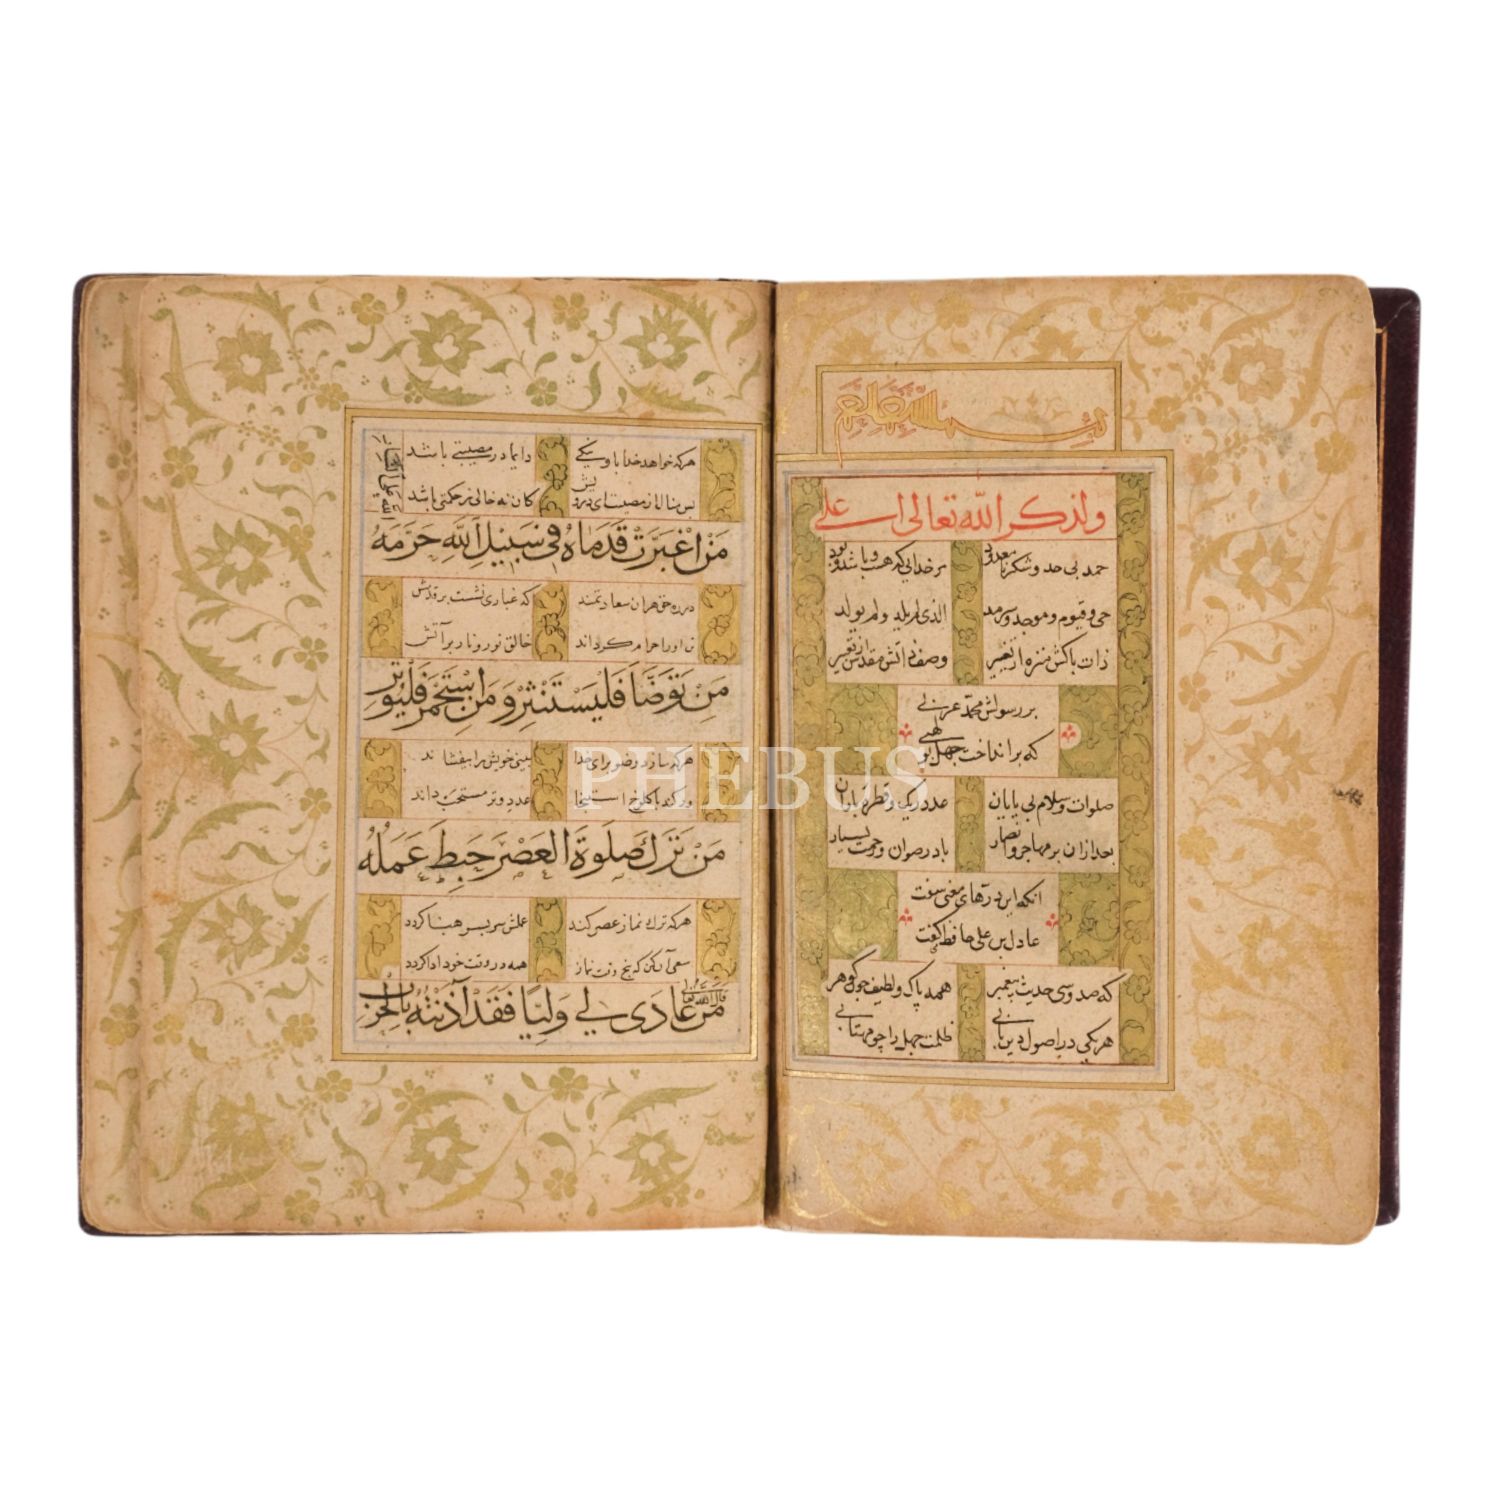 ولذكر الله تعالی اعلی
حمد بی حد و شکر نامعدود
بر خدایی که هست و باشد و بود
حی و قیوم و موجد و سرمد
الذی لم یلد ولم یولد
ذات پاکش منزه از تغییر
وصف ذاتش مقدس از تغییر
بر رسولش محمد عربی
که برانداخت جهل بولهبی
صلوات و سلام بی پایان
عدد ریک و قطره باران
بعد ازان بر مهاجر و انصار
باد رضوان و رحمت بسیار
آنکه این درهای معنی سفت
عادل بن علی حافظ گفت
که صد و سی حدیث پیغمبر
همه پاک و لطیف چون گوهر
هر یکی در اصول دین بابی
ظلمت جهل را چو مهتابی
هرکه خواهد خدا باو نیکی
دایما در مصیبتی باشد
پس منال از مصیبت ای درویش
کان نه خالی ز حکمتی باشد
مَنْ اغْبَرَّتْ قَدَمَاهُ فِي سَبِيلِ اللَّهِ حَرَّمَهُ
در ره حق هران سعادتمند
که غباری نشست بر قدمش
خالق نور و نار بر آتش
مَنْ تَوَضَّأَ فَلْيَسْتَنْثِرْ وَمَنِ اسْتَجْمَرَ فَلْيُوتِرْ
هرکه سازد وضو برای خدا
بینی خویش را بیفشاند
ورکند با کلوخ استنجا
عدد وتر مستحب داند
مَنْ تَرَكَ صَلٰوةَ الْعَصْرِ حَبِطَ عَمَلُهُ
هرکه ترك نماز عصر کند
عملش سربسر هبا گردد
سعی آن کن که پنج وقت نماز
همه در وقت خود ادا گردد
قال الله تعالی
مَنْ عَادَى لِي وَلِيًّا فَقَدْ آذَنْتُهُ بِالْحَرْبِ
PHEBUS